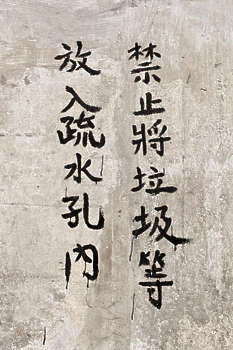 禁止將垃圾等
放入疏水孔內